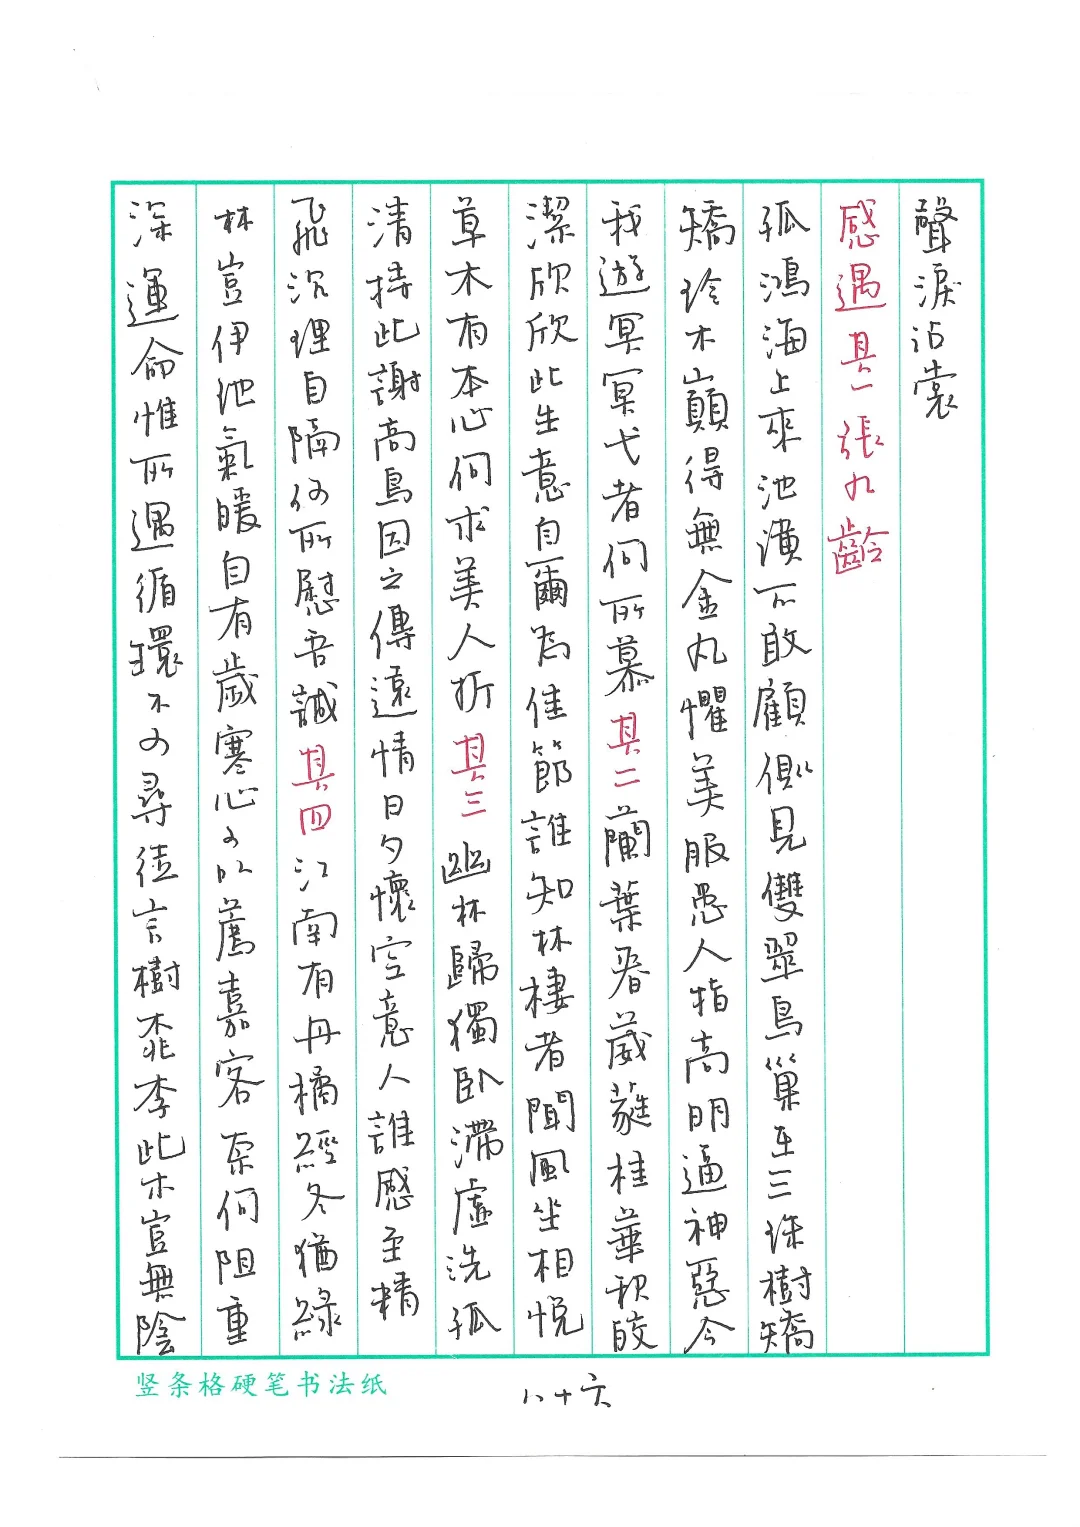 聲淚沾裳
感遇其一張九齡
孤鴻海上來池潢不敢顧側見雙翠鳥巢在三珠樹矯
矯珍木巔得無金丸懼美服患人指高明逼神惡今
我遊冥冥弋者何所慕其二蘭葉春葳蕤桂華秋皎
潔欣欣此生意自爾為佳節誰知林棲者聞風坐相悅
草木有本心何求美人折其三幽林歸獨臥滯虛洗孤
清持此謝高鳥因之傳遠情日夕懷空意人誰感至精
飛沉理自隔何所慰吾誠其四江南有丹橘經冬猶綠
林豈伊地氣暖自有歲寒心可以薦嘉客奈何阻重
深運命惟所遇循環不可尋徒言樹桃李此木豈無陰
竖条格硬笔书法纸
八十六